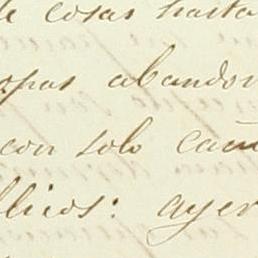 de cosas hasta
opas abandon
con solo cam
llicos: ayer